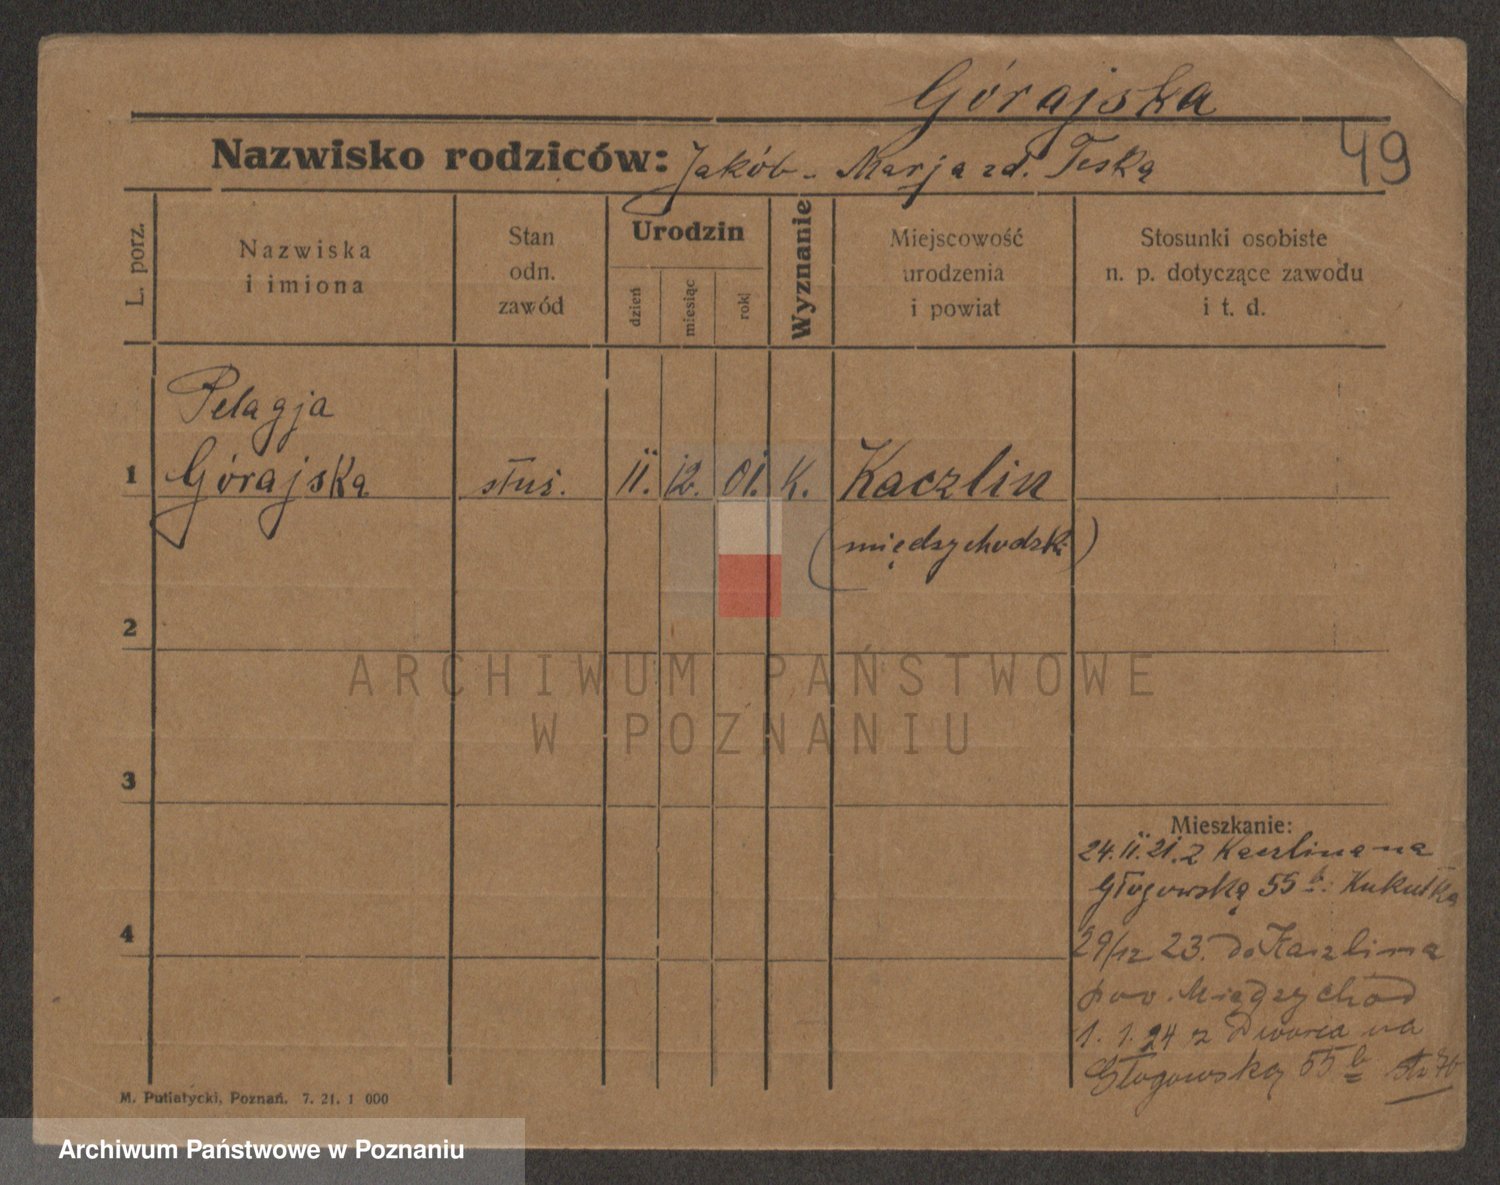 Górajska
49
Nazwisko rodziców: Jakób - Marja zd. Teska
L. porz.
Nazwiska
i imiona
Stan
odn.
zawód
Urodzin
dzień
miesiąc
rok
Wyznanie
Miejscowość
urodzenia
i powiat
Stosunki osobiste
n. p. dotyczące zawodu
i t. d.
Pelagja
1 Górajska służ. 11. 12. 01. K. Kaczlin
(międzychodzki)
2
ARCHIWUM PAŃSTWOWE
W POZNANIU
3
Mieszkanie:
24.11.21. z Kaczlina na
Głogowską 55 b. Kukułka
4
29/12 23. do Kaczlina
pow. Międzychód
1. 1. 24 z Dworca na
Głogowską 55 b
M. Putiatycki, Poznań. 7. 21. 1 000
Archiwum Państwowe w Poznaniu